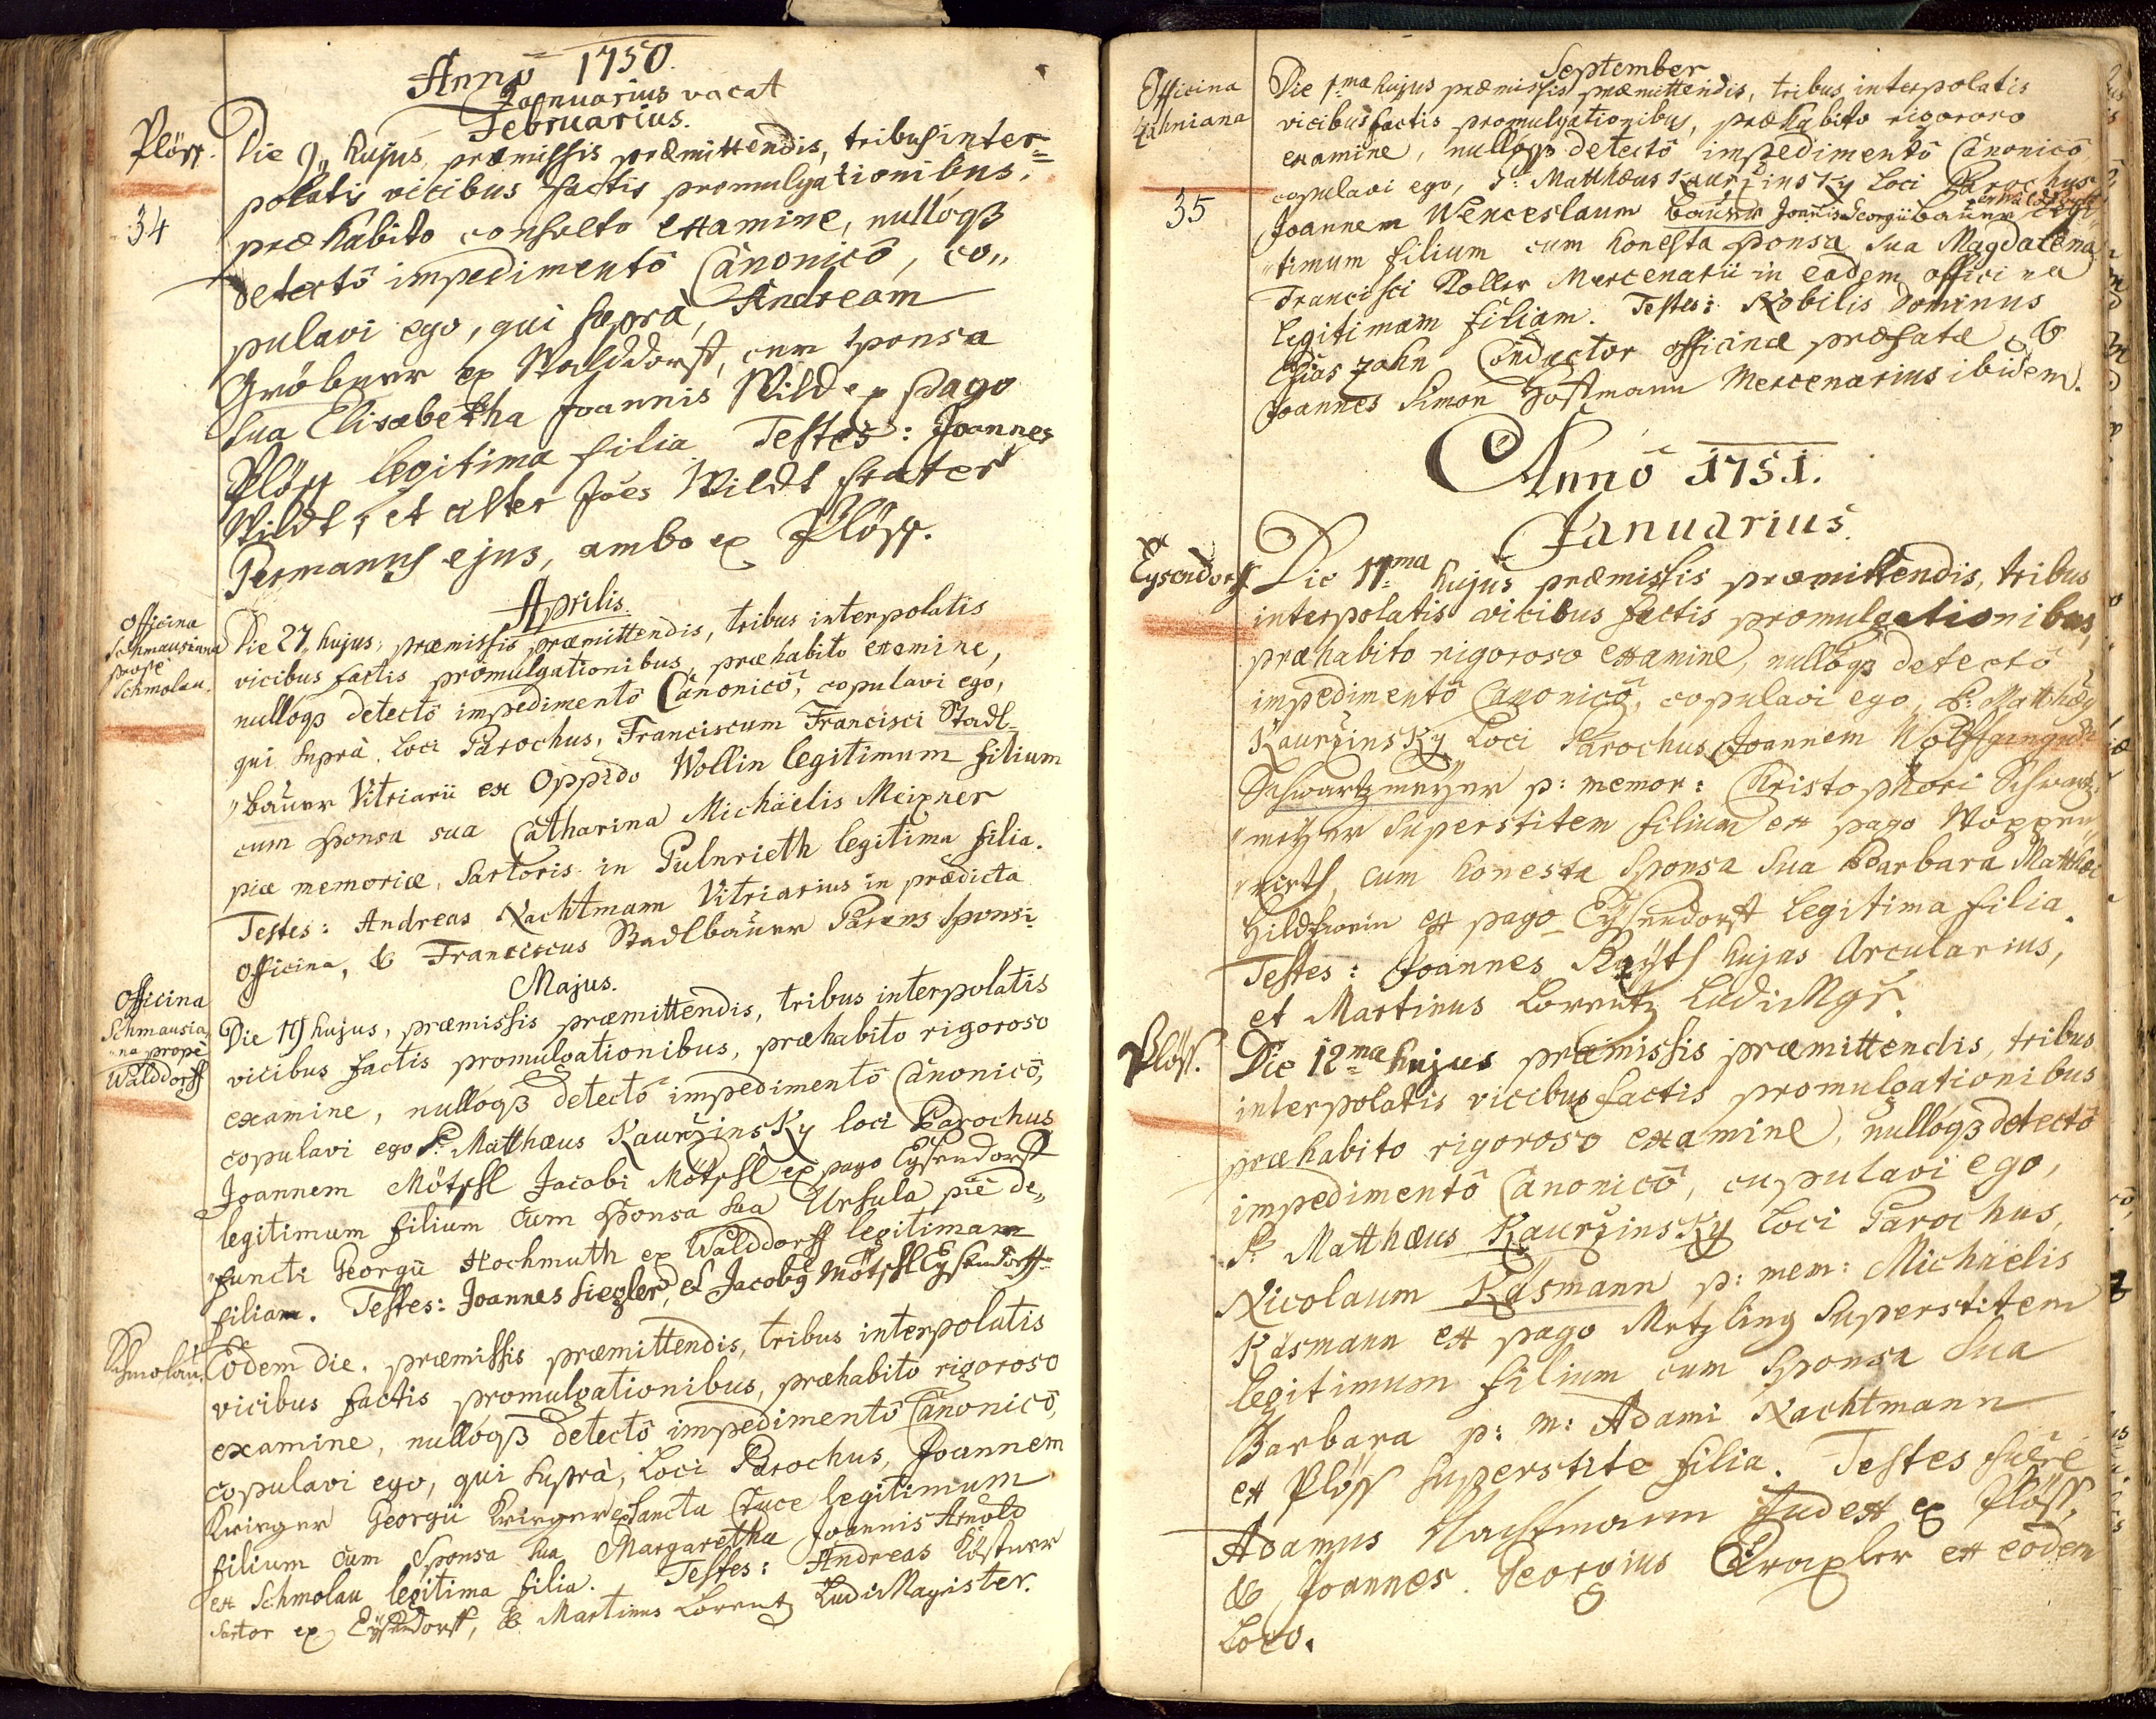 Anno 1750.
Januarius vacat
Februarius.
Plöss.
34
Die 9 hujus præmissis præmittendis, tribus inter=
polatis vicibus factis promulgationibus,
præhabito consveto examine, nullóq3
detectô impedimentô Canonicô, co„
pulavi ego, qui suprà, Andream
Gröbner ex Walddorff, cum sponsa
sua Elisabetha Joannis Wild ex pago
Plöss legitima filia. Testes: Joannes
Wildt, et alter Joës Wildt frater
Germanus ejus, ambo ex Plöss.
Aprilis.
Officina
Schmausiana
propè
Schmolau.
Die 27 hujus, præmissis præmittendis, tribus interpolatis
vicibus factis promulgationibus, præhabito examine,
nullóq3 detectô impedimentô Canonicô, copulavi ego,
qui suprà, Loci Parochus, Franciscum Francisci Stadl=
„bauer Vitriarii ex Oppido Wollin legitimum filium
cum sponsa sua Catharina Michäelis Meixner
piæ memoriæ, Sartoris in Pulnrieth legitima filia.
Testes: Andreas Nachtmann Vitriarius in prædicta
officina, & Franciscus Stadlbauer Parens sponsi.
Majus.
Officina
Schmausia
„na propè
Walddorff
Die 19 hujus, præmissis præmittendis, tribus interpolatis
vicibus factis promulgationibus, præhabito rigoroso
examine, nullóq3 detectô impedimentô Canonicô,
copulavi ego P. Matthæus Kauržinsky loci Parochus
Joannem Mötschl Jacobi Mötschl ex pago Eysendorff
legitimum filium cum sponsa sua Ursula piè de„
„functi Georgii Hochmuth ex Walddorff legitimam
filiam. Testes: Joannes Siegler, et Jacobg Mötschl Eysendorff.
Schmolau.
Eôdem die, præmissis præmittendis, tribus interpolatis
vicibus factis promulgationibus, præhabito rigoroso
examine, nullóq3 detectô impedimentô Canonicô,
copulavi ego, qui suprà, Loci Parochus, Joannem
Krieger Georgii Krieger ex Sancta Cruce legitimum
filium cum Sponsa sua Margaretha Joannis Arnold
ex Schmolau legitima filia. Testes: Andreas Köstner
Sartor ex Eysendorff, & Martinus Lorentz LudiMagister.
September
Officina
Zahniana
35
Die 1ma hujus præmissis præmittendis, tribus interpolatis
vicibus factis promulgationibus, præhabito rigoroso
examine, nullóq3 detectô impedimentô Canonicô,
copulavi ego, P. Matthæus Kauržinsky Loci Parochus
Joannem Wenceslaum Bauer Joannis Georgii Bauer legi
„timum filium cum honesta sponsa sua Magdalena
Francisci Roller Mercenarii in eadem officina
legitimam filiam. Testes: Nobilis Dominus
Elias Zahn Conductor officinæ præfatæ &
Joannes Simon Hoffmann Mercenarius ibidem.
Annô 1751.
Januarius.
ex
Eysendorff
Die 11ma hujus præmissis præmittendis, tribus
interpolatis vicibus factis promulgationibus,
præhabito rigoroso examine, nullóq3 detectô
impedimentô Canonicô, copulavi ego, P. Matthæg
Kauržinsky Loci Parochus Joannem Wolffgangum
Schwartzmeyer p: memor: Christophori Schwartz„
„meyer superstitem filium ex pago Woppen„
„rieth, cum honesta Sponsa sua Barbara Matthæi
Hildtwein ex pago Eysendorff legitima filia.
Testes: Joannes Rayth hujas Arcularius,
et Martinus Lorentz LudiMgr.
Plöss.
Die 12ma hujus præmissis præmittendis, tribus
interpolatis vicibus factis promulgationibus
præhabito rigoroso examine, nullóq3 detectô
impedimentô Canonicô, copulavi ego,
P. Matthæus Kauržinsky Loci Parochus,
Nicolaum Käsmann p: mem: Michaelis
Käsmann ex pago Metzling Superstitem
legitimum filium cum Sponsa sua
Barbara p: m: Adami Nachtmann
ex Plöss superstite filia. Testes fuêre
Adamus Nachtmann Judex ex Plöss,
& Joannes Georgius Draxler ex eôdem
Loco.